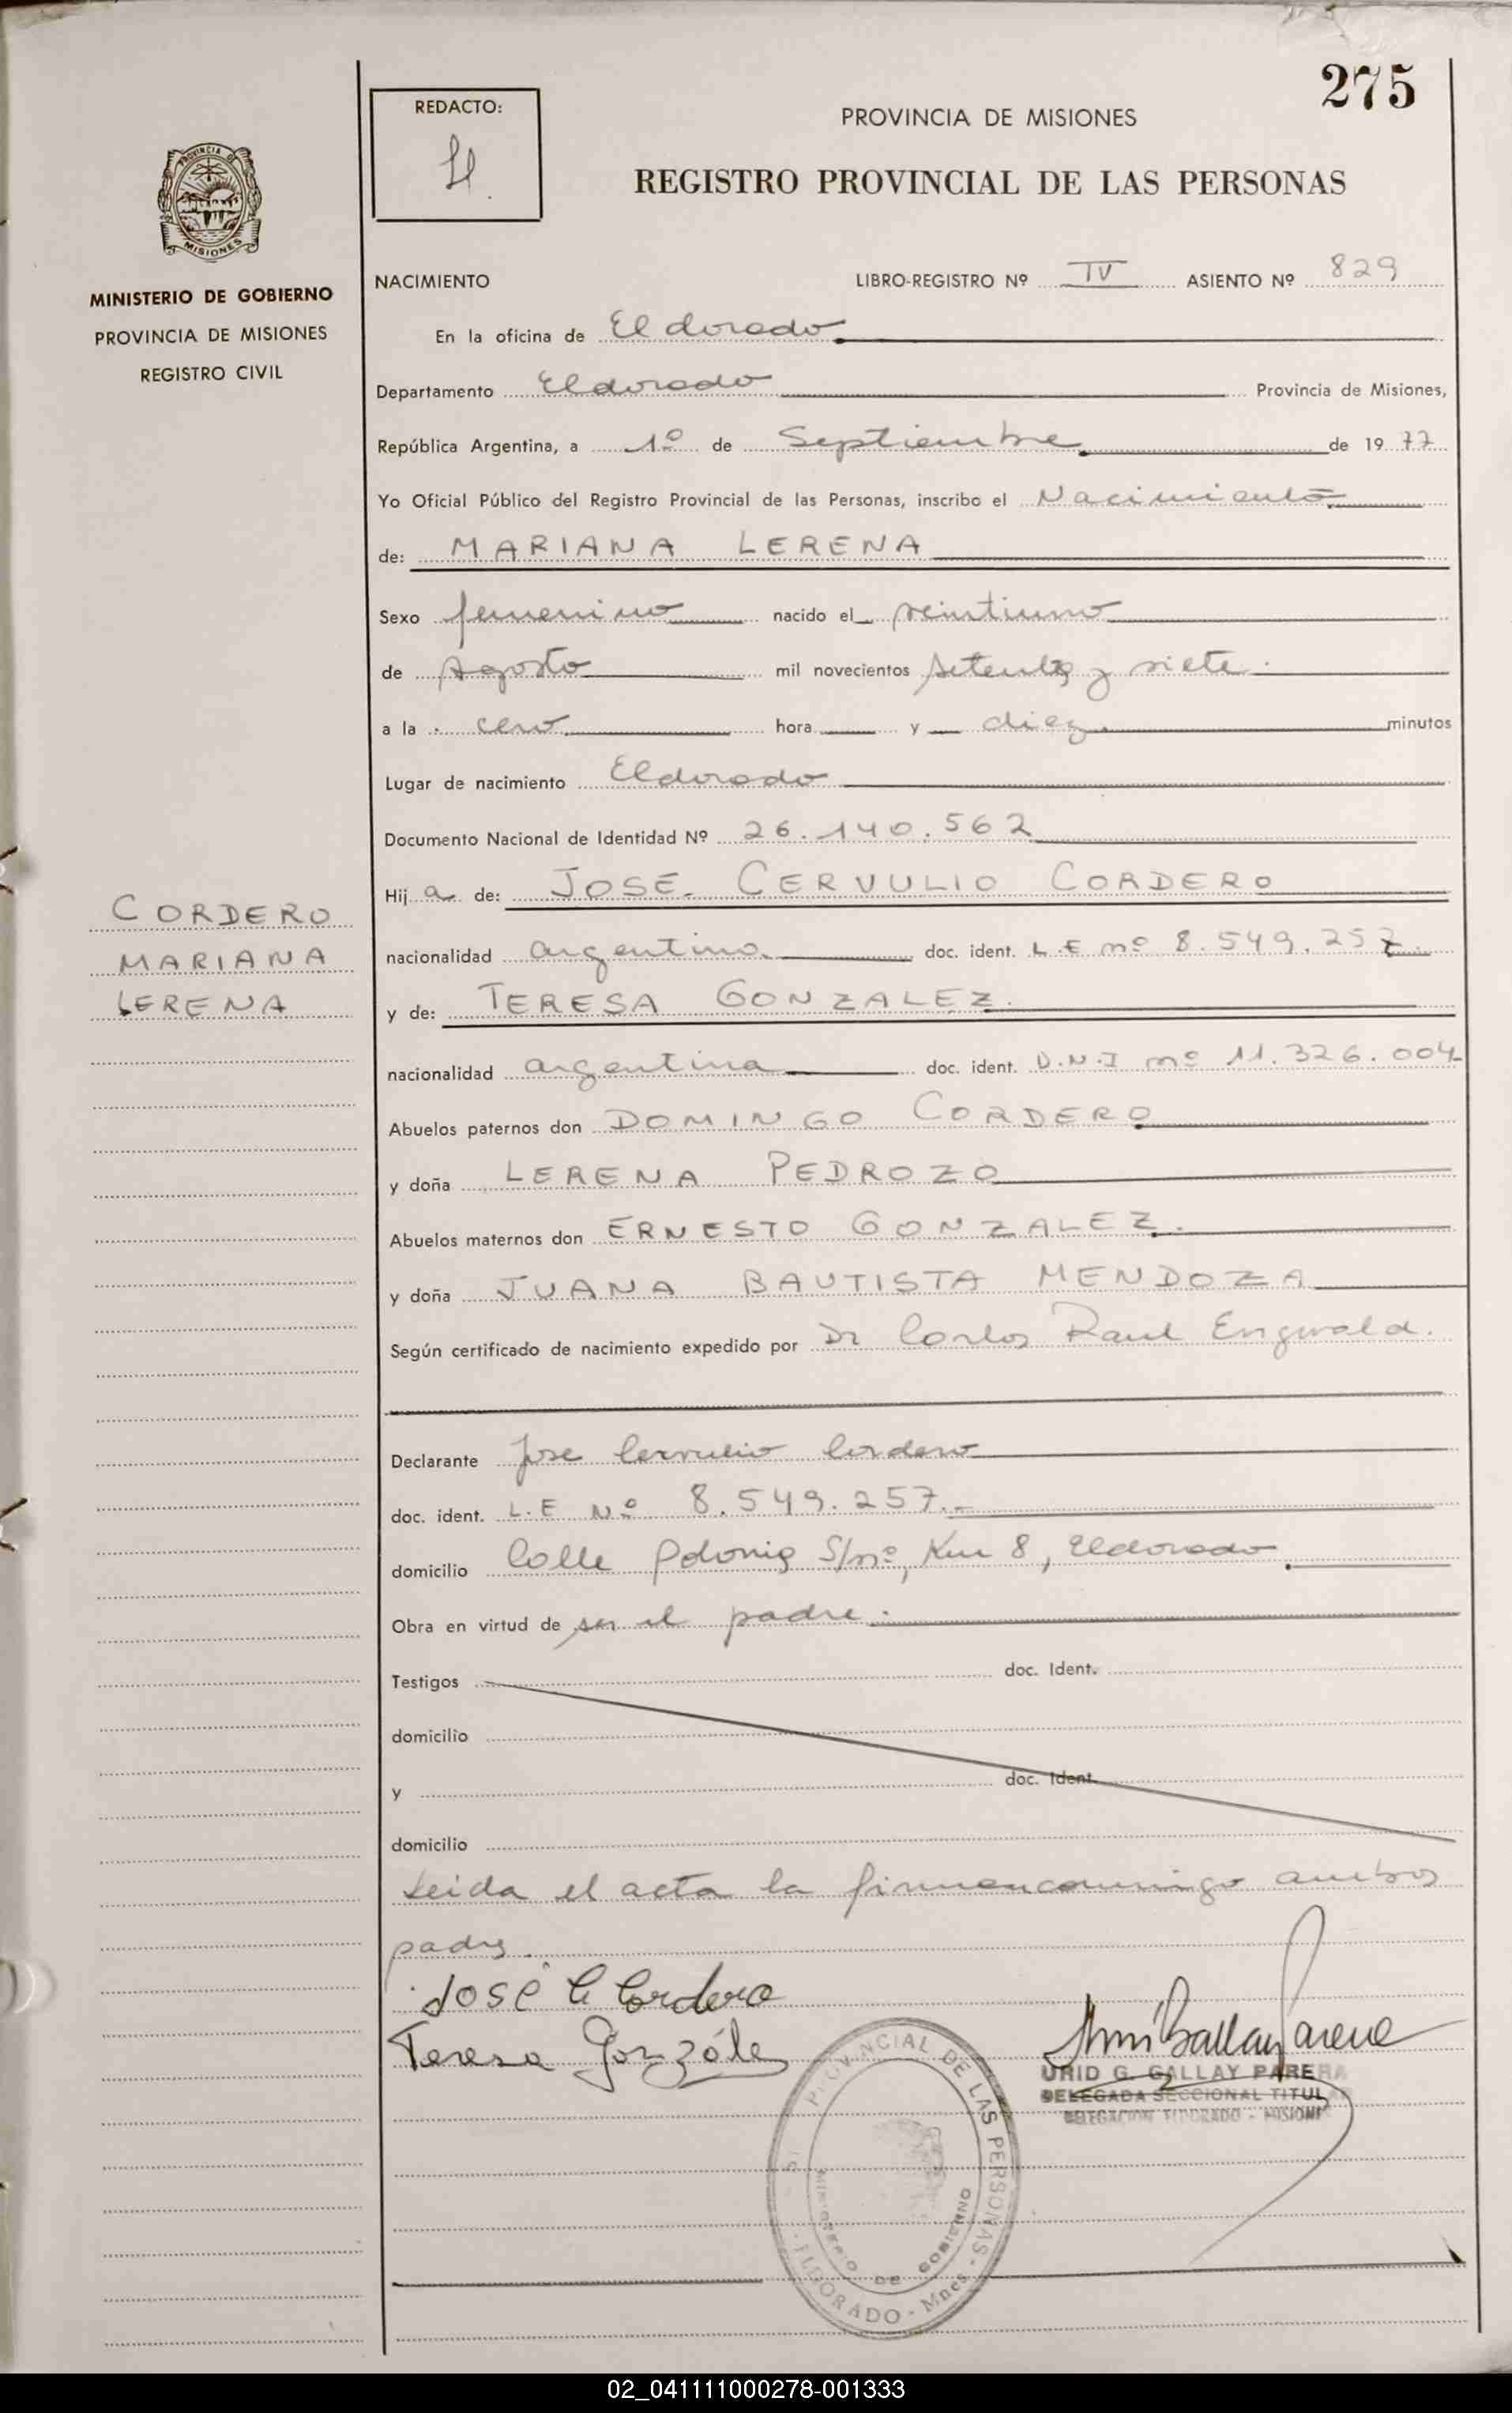 275
REDACTO:
PROVINCIA DE MISIONES
REGISTRO PROVINCIAL DE LAS PERSONAS
PROVINCIA DE
MISIONES
MINISTERIO DE GOBIERNO
PROVINCIA DE MISIONES
REGISTRO CIVIL
NACIMIENTO LIBRO-REGISTRO Nº IV ASIENTO Nº 829
En la oficina de Eldorado
Departamento Eldorado Provincia de Misiones,
República Argentina, a 1º de Septiembre de 1977
Yo Oficial Público del Registro Provincial de las Personas, inscribo el Nacimiento
de: MARIANA LERENA
Sexo femenino nacido el veintiuno
de Agosto mil novecientos setenta y siete.
a la cero hora y diez minutos
Lugar de nacimiento Eldorado
Documento Nacional de Identidad Nº 26.140.562
Hij a de: JOSE CERVULIO CORDERO
CORDERO
MARIANA
LERENA
nacionalidad argentino doc. ident. L.E nº 8.549.257
y de: TERESA GONZALEZ.
nacionalidad argentina doc. ident. D.N.I nº 11.326.004
Abuelos paternos don DOMINGO CORDERO
y doña LERENA PEDROZO
Abuelos maternos don ERNESTO GONZALEZ.
y doña JUANA BAUTISTA MENDOZA
Según certificado de nacimiento expedido por Dr Carlos Raul Engwald.
Declarante Jose Cervulio Cordero
doc. ident. L.E Nº 8.549.257.-
domicilio Calle Polonia S/nº, Km 8, Eldorado.
Obra en virtud de ser el padre.
Testigos doc. Ident.
domicilio
y doc. Ident.
domicilio
Leida el acta la firman conmigo ambos
padres.
José C Cordero
Teresa González
URID G. GALLAY PARERA
DELEGADA SECCIONAL TITULAR
DELEGACION ELDORADO - MISIONES
PROVINCIAL DE LAS PERSONAS
MINISTERIO DE GOBIERNO
ELDORADO - Mnes.
02_041111000278-001333